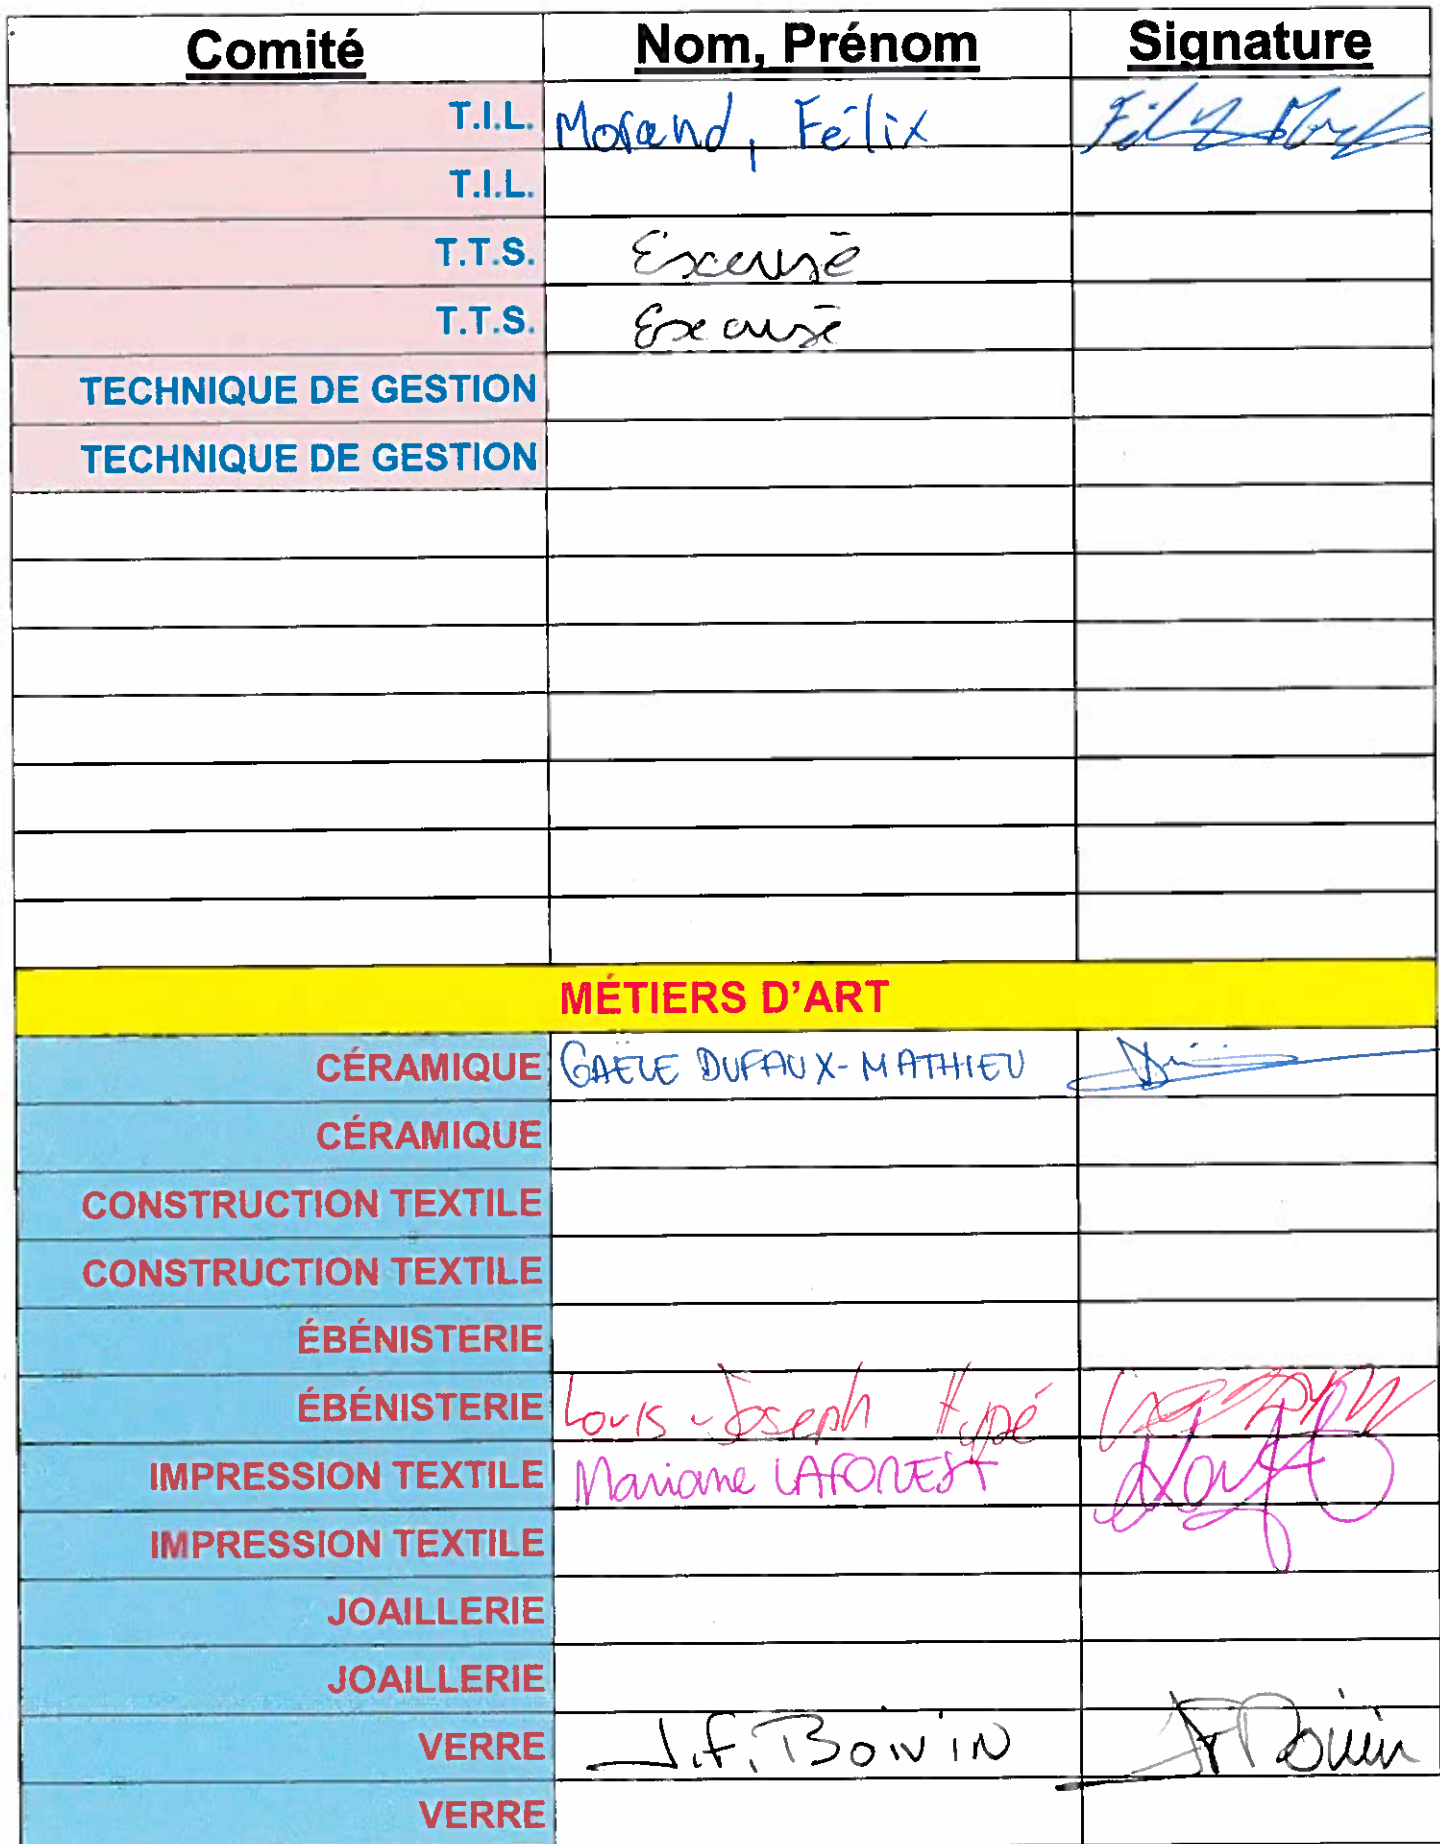 Comité Nom, Prénom Signature
T.I.L. Morand, Félix
T.I.L.
T.T.S. Excusé
T.T.S. Excusé
TECHNIQUE DE GESTION
TECHNIQUE DE GESTION
MÉTIERS D'ART
CÉRAMIQUE GAËLE DUFAUX-MATHIEU
CÉRAMIQUE
CONSTRUCTION TEXTILE
CONSTRUCTION TEXTILE
ÉBÉNISTERIE
ÉBÉNISTERIE Louis-Joseph Hupé
IMPRESSION TEXTILE Mariane LAFOREST
IMPRESSION TEXTILE
JOAILLERIE
JOAILLERIE
VERRE J.F. Boivin JF Boivin
VERRE